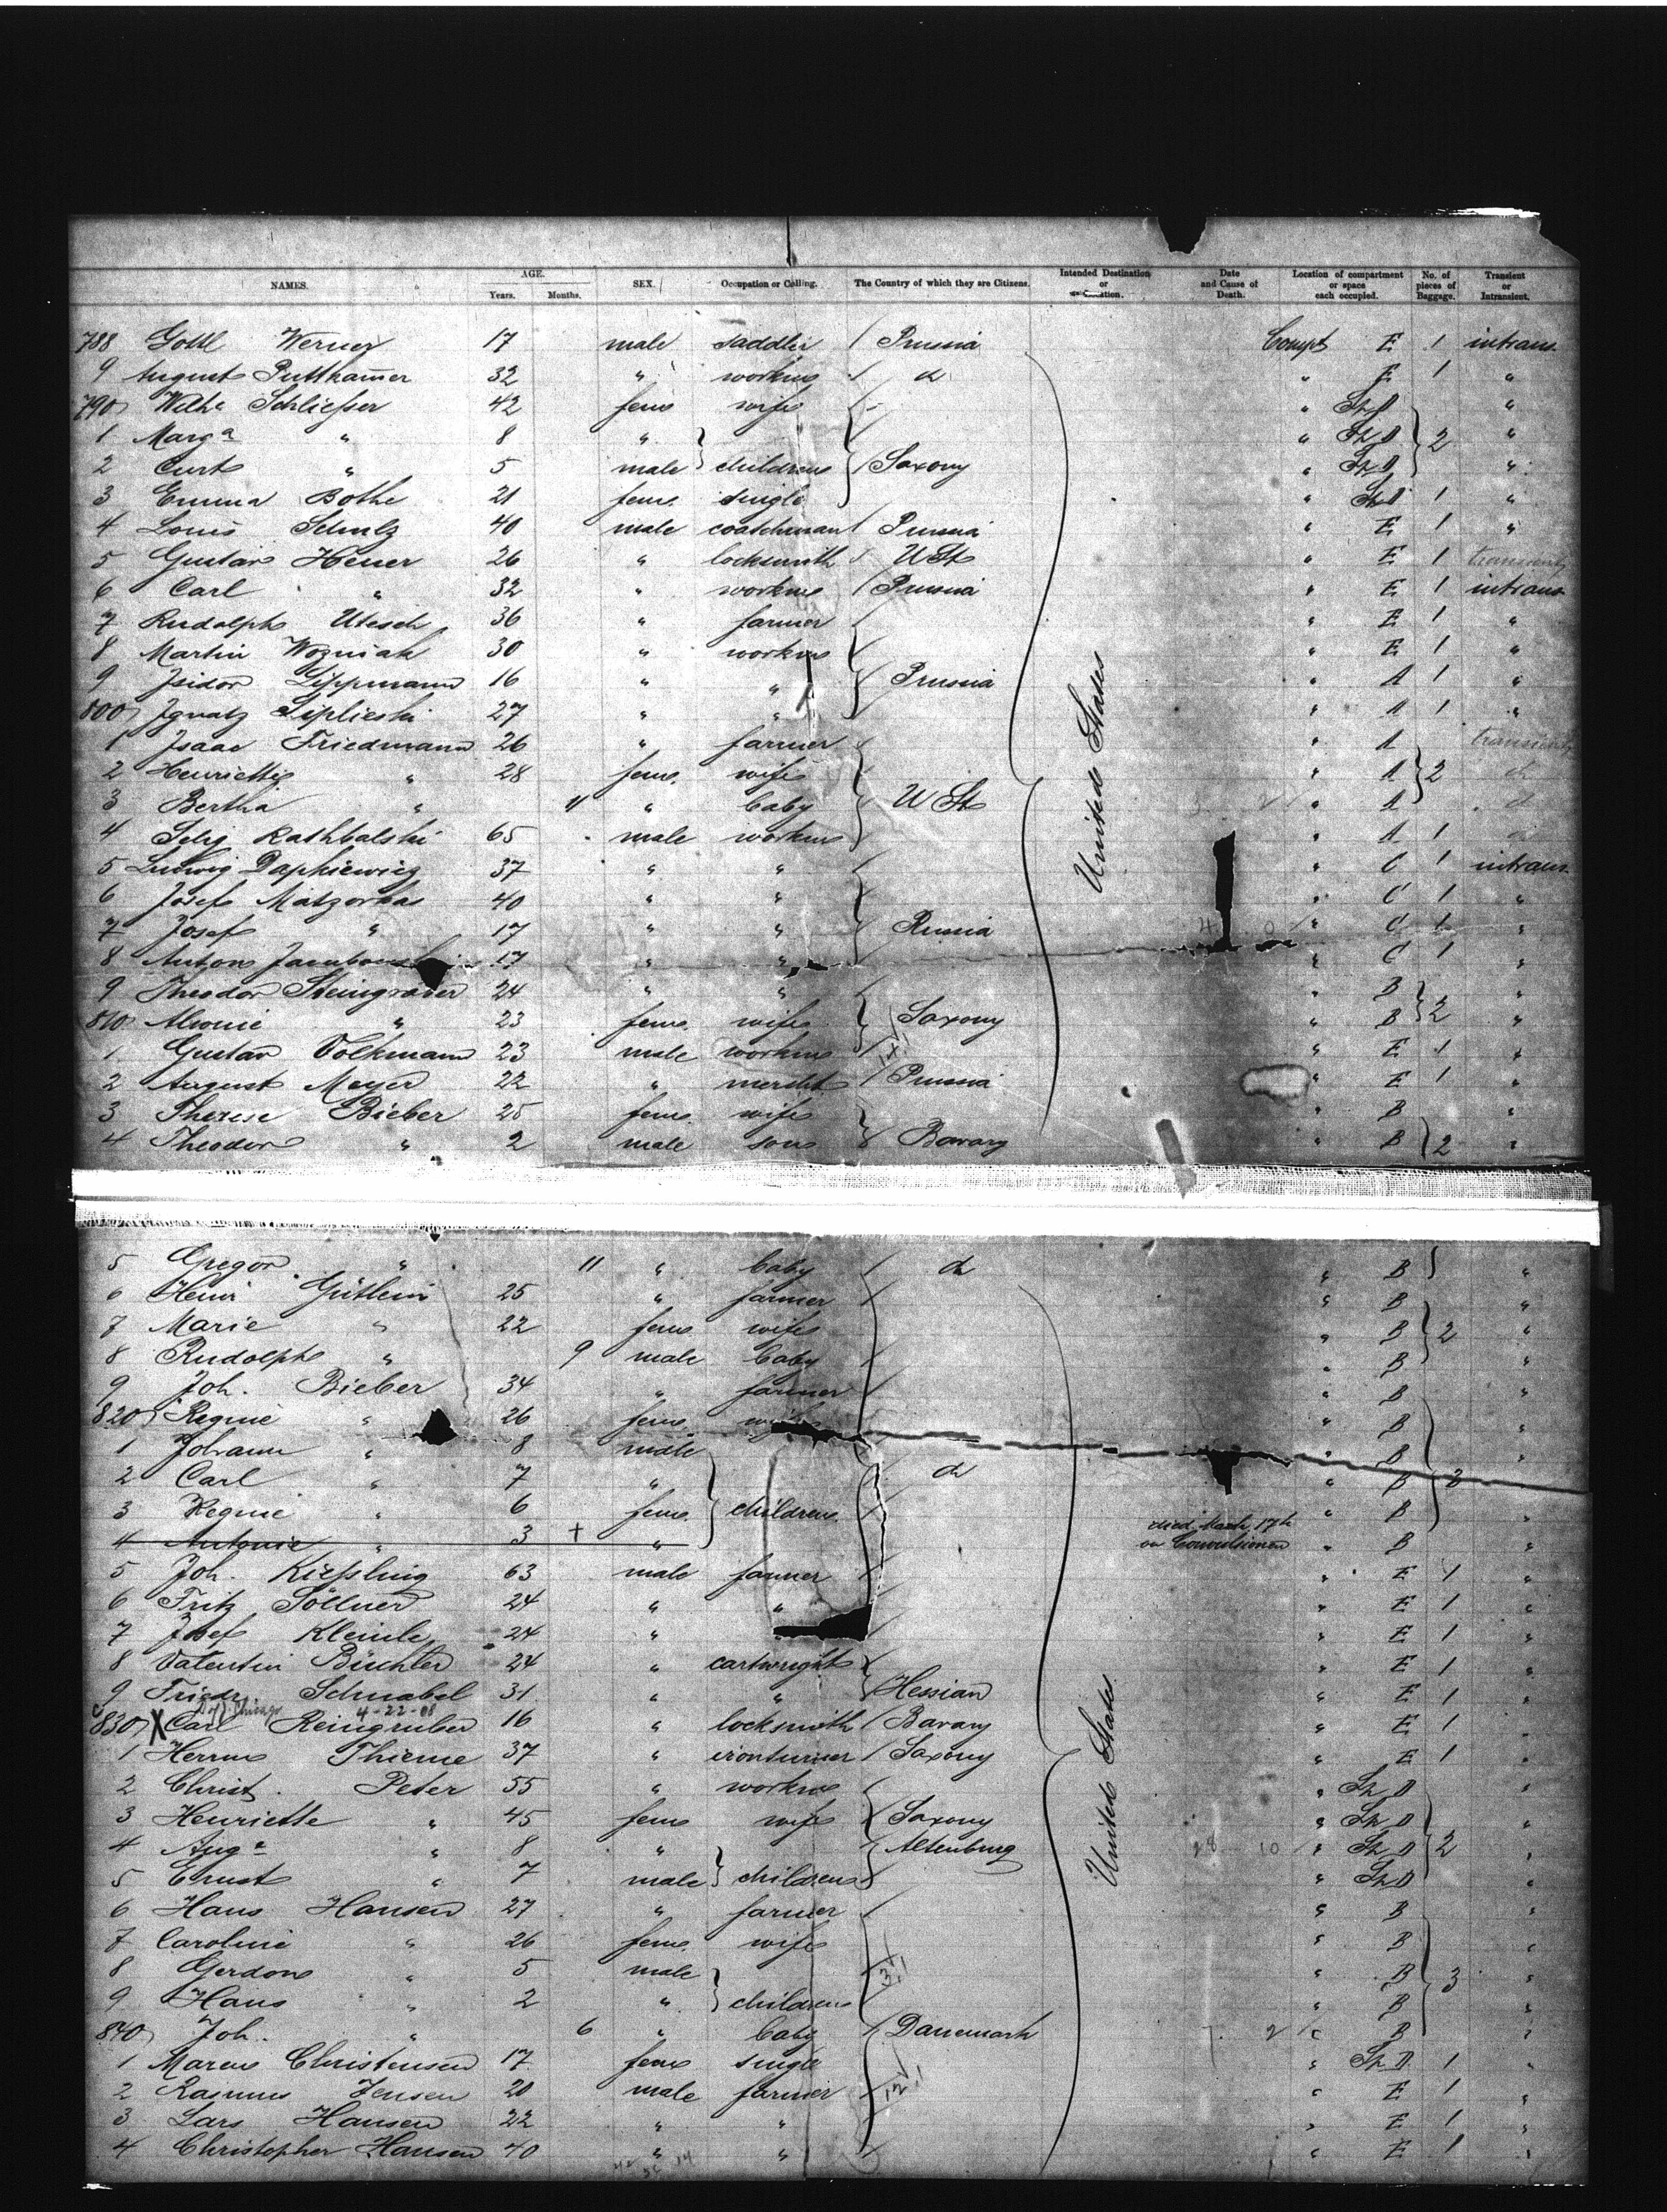 NAMES. AGE. Years. Months. SEX. Occupation or Calling. The Country of which they are Citizens. Intended Destination or Date and Cause of Death. Location of compartment or space each occupied. No. of pieces of Baggage. Transient or Intransient.
788 Gottl Werner 17 male saddler / Prussia Compt E 1 intrans.
9 August Putthamer 32 " " d " E 1 "
790 Wilh. Schliesser 42 fem. wife " St D "
1 Marg a " 8 " " St D 2 "
2 Curt " 5 male children Saxony " St D "
3 Emma Bothe 21 fem. single " St D 1 "
4 Louis Schulz 40 male coatchman Prussia " E 1 "
5 Gustav Heuer 26 " locksmith U St " E 1 transient
6 Carl " 32 " Prussia " E 1 intrans
7 Rudolph Utesch 36 " farmer " E 1 "
8 Martin Wozniak 30 " " E 1 "
9 Isidor Lippmann 16 " " Prussia " A 1 "
800 Ignatz 27 " " " A 1 "
1 Isaac Friedmann 26 " farmer " A transient
2 Henriette " 28 fem. wife " A 2 d
3 Bertha " 11 " baby U St " A d
4 65 male " A 1
5 Ludwig 37 " " " C 1 intrans.
6 Josef 40 " " " C 1 "
7 Josef " 17 " " Russia " C 1 "
8 Anton 17 " " " C 1 "
9 Theodor Steingräber 24 " " " B "
810 " 23 fem. wife Saxony " B 2 "
1 Gustav Volkmann 23 male " E 1 "
2 August Meyer 22 " Prussia " E 1 "
3 Therese Bieber 25 fem. wife " B "
4 Theodor " 2 male son Bavary " B 2 "
United States
5 Gregor " 11 " baby / d " B "
6 Heinr Gütlein 25 " farmer " B "
7 Marie " 22 fem. wife " B 2 "
8 Rudolph " 9 male baby " B "
9 Joh. Bieber 34 " farmer " B "
820 Regine " 26 fem. wife " B "
1 Johann " 8 male " B "
2 Carl " 7 " d " B "
3 Regine " 6 fem. children " B "
4 Antonie " 3 + " died March 17th on Convulsionen " B "
5 Joh. Kiessling 63 male farmer " E 1 "
6 Fritz Söllner 24 " " " E 1 "
7 Josef Kleinle 24 " " E 1 "
8 Valentin Büchler 24 " cartwright " E 1 "
9 Friedr. Schnabel 31 " " Hessian " E 1 "
Chicago 4-22-08
830 X Carl Reingruber 16 " locksmith / Bavary " E 1 "
1 Herm Thieme 37 " ironturner / Saxony " E 1 "
2 Christ. Peter 55 " " St D "
3 Henriette " 45 fem. wife Saxony " St D "
4 Aug a " 8 " Altenburg " St D 2 "
5 Ernst " 7 male children " St D "
6 Hans Hansen 27 " farmer " B "
7 Caroline " 26 fem. wife " B "
8 " 5 male " B 3 "
9 Hans " 2 " children " B "
840 Joh. " 6 " baby Danemark " B "
1 Christensen 17 fem. single " St D 1 "
2 Rasmus Jensen 20 male farmer " E 1 "
3 Lars Hansen 22 " " " E 1 "
4 Christopher Hansen 40 " " " E 1 "
United States